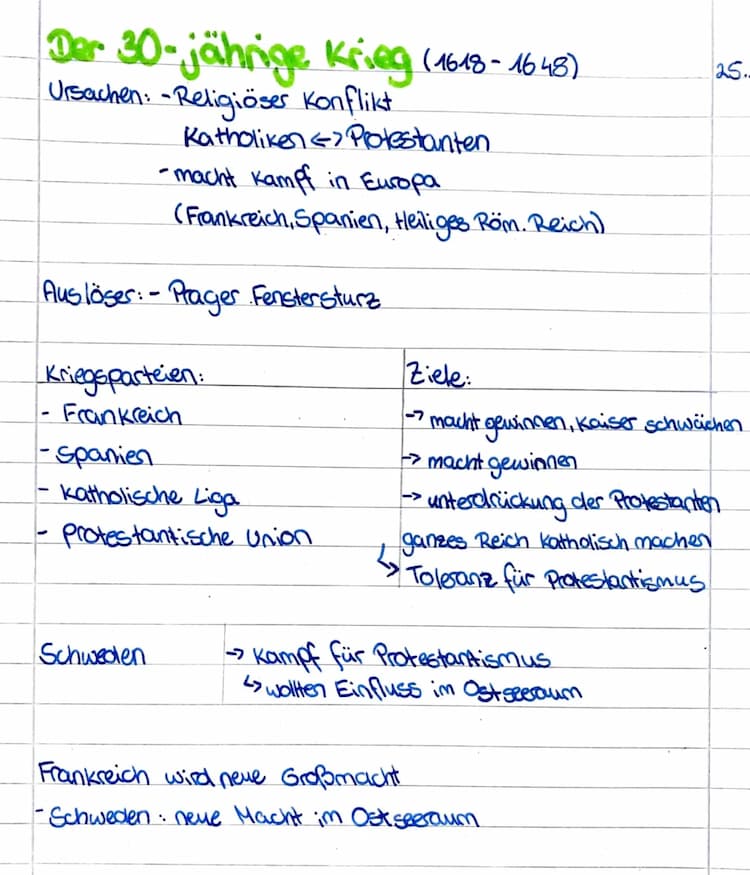 Der 30-jährige Krieg (1618 - 1648) 25.
Ursachen: - Religiöser Konflikt
Katholiken <-> Protestanten
- macht Kampf in Europa
(Frankreich, Spanien, Heiliges Röm. Reich)
Auslöser: - Prager Fenstersturz
Kriegsparteien: Ziele:
- Frankreich -> macht gewinnen, Kaiser schwächen
- Spanien -> macht gewinnen
- Katholische Liga -> unterdrückung der Protestanten
- Protestantische Union ganzes Reich katholisch machen
↳ Toleranz für Protestantismus
Schweden -> Kampf für Protestantismus
↳ wollten Einfluss im Ostseeraum
Frankreich wird neue Großmacht
- Schweden: neue Macht im Ostseeraum